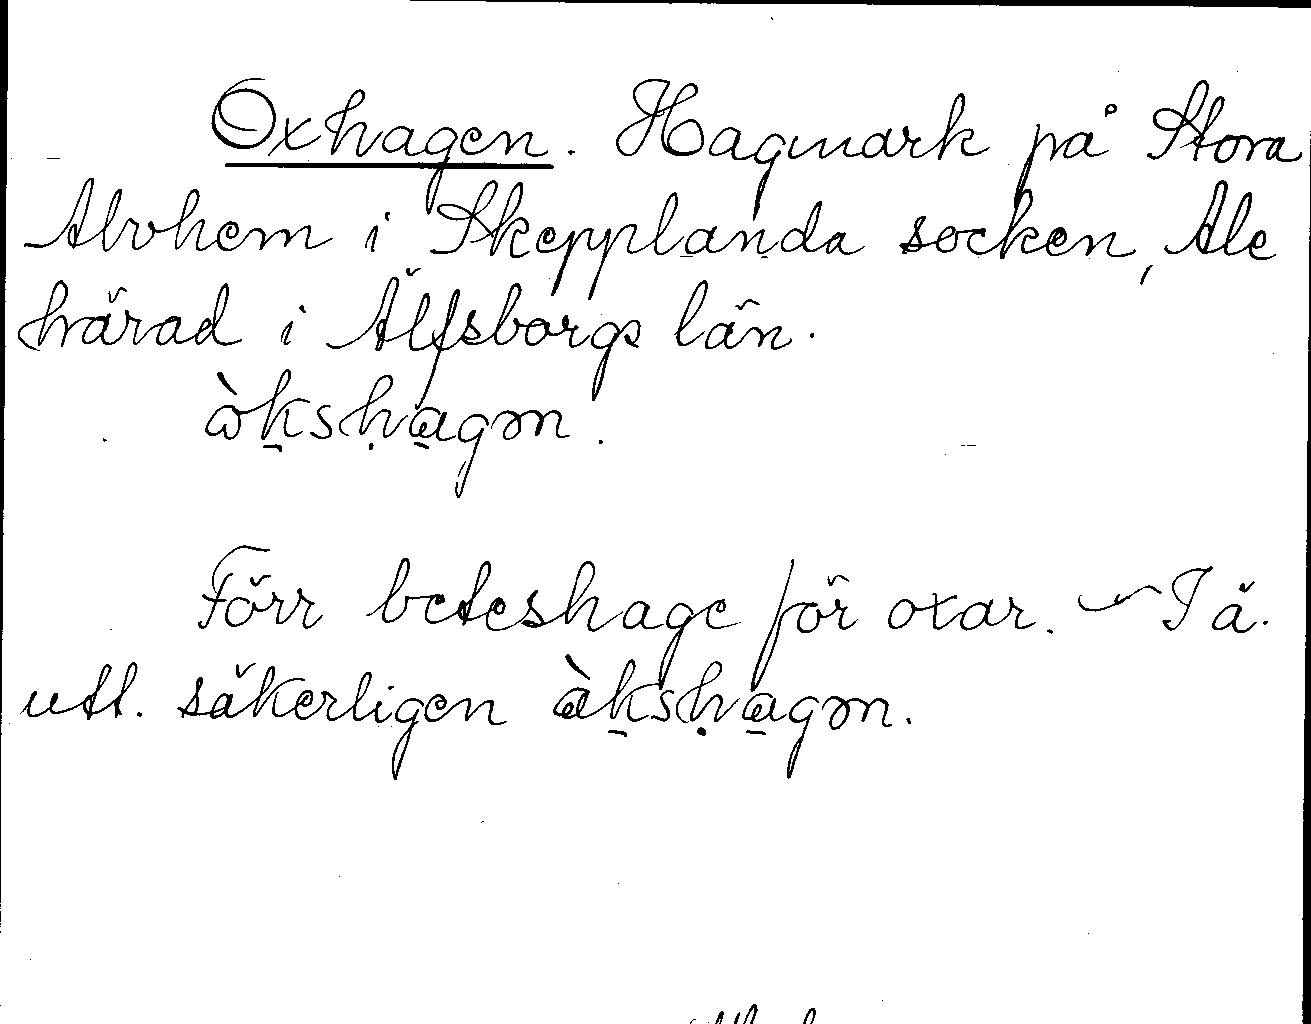 Oxhagen. Hagmark på Stora
Alvhem i Skepplanda socken, Ale
härad i Älfsborgs län.
òkshagən.
Förr beteshage för oxar. – I ä.
utt. säkerligen àkshagən.